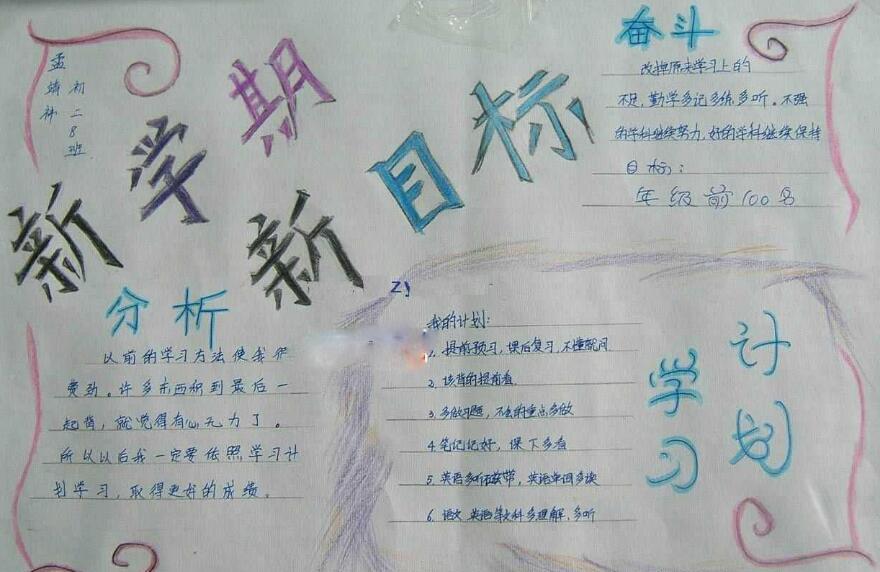 新学期
新目标
孟靖
初二8班
奋斗
改掉原来学习上的
不足,勤学多记多练多听。不强
的学科继续努力,好的学科继续保持
目标:
年级前100名
分析
以前的学习方法使我很
费劲。许多东西积到最后一
起背,就觉得有心无力了。
所以以后我一定要依照学习计
划学习,取得更好的成绩。
我的计划:
1. 提前预习,课后复习,不懂就问
2. 该背的提前看
3. 多做习题,不会的重点多做
4. 笔记记好,课下多看
5. 英语多听磁带,英语单词多读
6. 语文 英语等文科多理解,多听
学习
计划